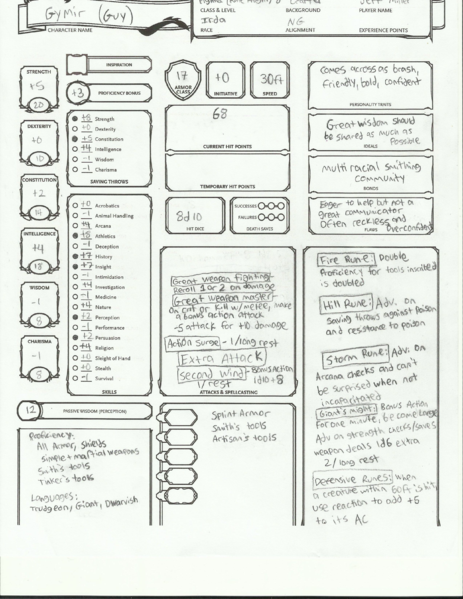 Gymir (Guy)
CHARACTER NAME
CLASS & LEVEL
BACKGROUND
Jeff
PLAYER NAME
Irda
RACE
NG
ALIGNMENT
EXPERIENCE POINTS
STRENGTH
+5
20
DEXTERITY
+0
10
CONSTITUTION
+2
14
INTELLIGENCE
+4
18
WISDOM
-1
8
CHARISMA
-1
8
INSPIRATION
+3 PROFICIENCY BONUS
+8 Strength
+0 Dexterity
+5 Constitution
+4 Intelligence
-1 Wisdom
-1 Charisma
SAVING THROWS
+0 Acrobatics
-1 Animal Handling
+4 Arcana
+8 Athletics
-1 Deception
+7 History
Insight
-1 Intimidation
+4 Investigation
-1 Medicine
+4 Nature
+2 Perception
-1 Performance
+2 Persuasion
+4 Religion
+0 Sleight of Hand
+0 Stealth
-1 Survival
SKILLS
12 PASSIVE WISDOM (PERCEPTION)
Proficiency:
All Armor, Shields
Simple + martial weapons
Smith's tools
Tinker's tools
Languages:
Giant, Dwarvish
17
ARMOR CLASS
+0
INITIATIVE
30ft
SPEED
68
CURRENT HIT POINTS
TEMPORARY HIT POINTS
8d10
HIT DICE
SUCCESSES
FAILURES
DEATH SAVES
Great weapon fighting:
Reroll 1 or 2 on damage
Great weapon master:
on crit or kill w/ melee, make
a bonus action attack
-5 attack for +10 damage
Action Surge - 1/long rest
Extra Attack
Second Wind - Bonus Action
1d10+8
1/rest
ATTACKS & SPELLCASTING
Splint Armor
Smith's tools
Artisan's tools
Comes across as brash,
friendly, bold, confident
PERSONALITY TRAITS
Great wisdom should
be shared as much as
possible
IDEALS
Multi racial smithing
community
BONDS
Eager to help but not a
great communicator
Often reckless and
overconfident
FLAWS
Fire Rune: Double
Proficiency for tools
is doubled
Hill Rune: Adv. on
saving throws against Poison
and resistance to poison
Storm Rune: Adv. on
Arcana checks and can't
be surprised when not
incapacitated
Giant's might: Bonus Action
For one minute, become Large
Adv on strength checks/saves
weapon deals 1d6 extra
2/long rest
Defensive Runes: When
a creature within 60ft is hit,
use reaction to add +5
to its AC